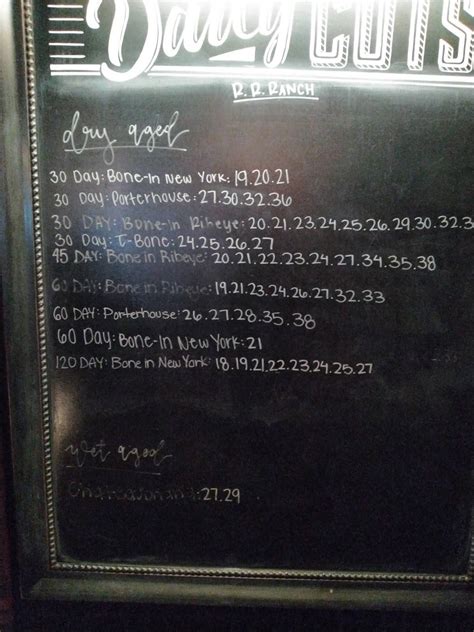 Daily CUTS
R.R. RANCH
dry aged
30 Day: Bone-In New York: 19.20.21
30 Day: Porterhouse: 27.30.32.36
30 DAY: Bone-In Ribeye: 20.21.23.24.25.26.29.30.32.3
30 Day: T-Bone: 24.25.26.27
45 DAY: Bone in Ribeye: 20.21.22.23.24.27.34.35.38
60 DAY: Bone in Ribeye: 19.21.23.24.26.27.32.33
60 DAY: Porterhouse: 26.27.28.35.38
60 Day: Bone-In New York: 21
120 DAY: Bone in New York: 18.19.21.22.23.24.25.27
wet aged
:27.29